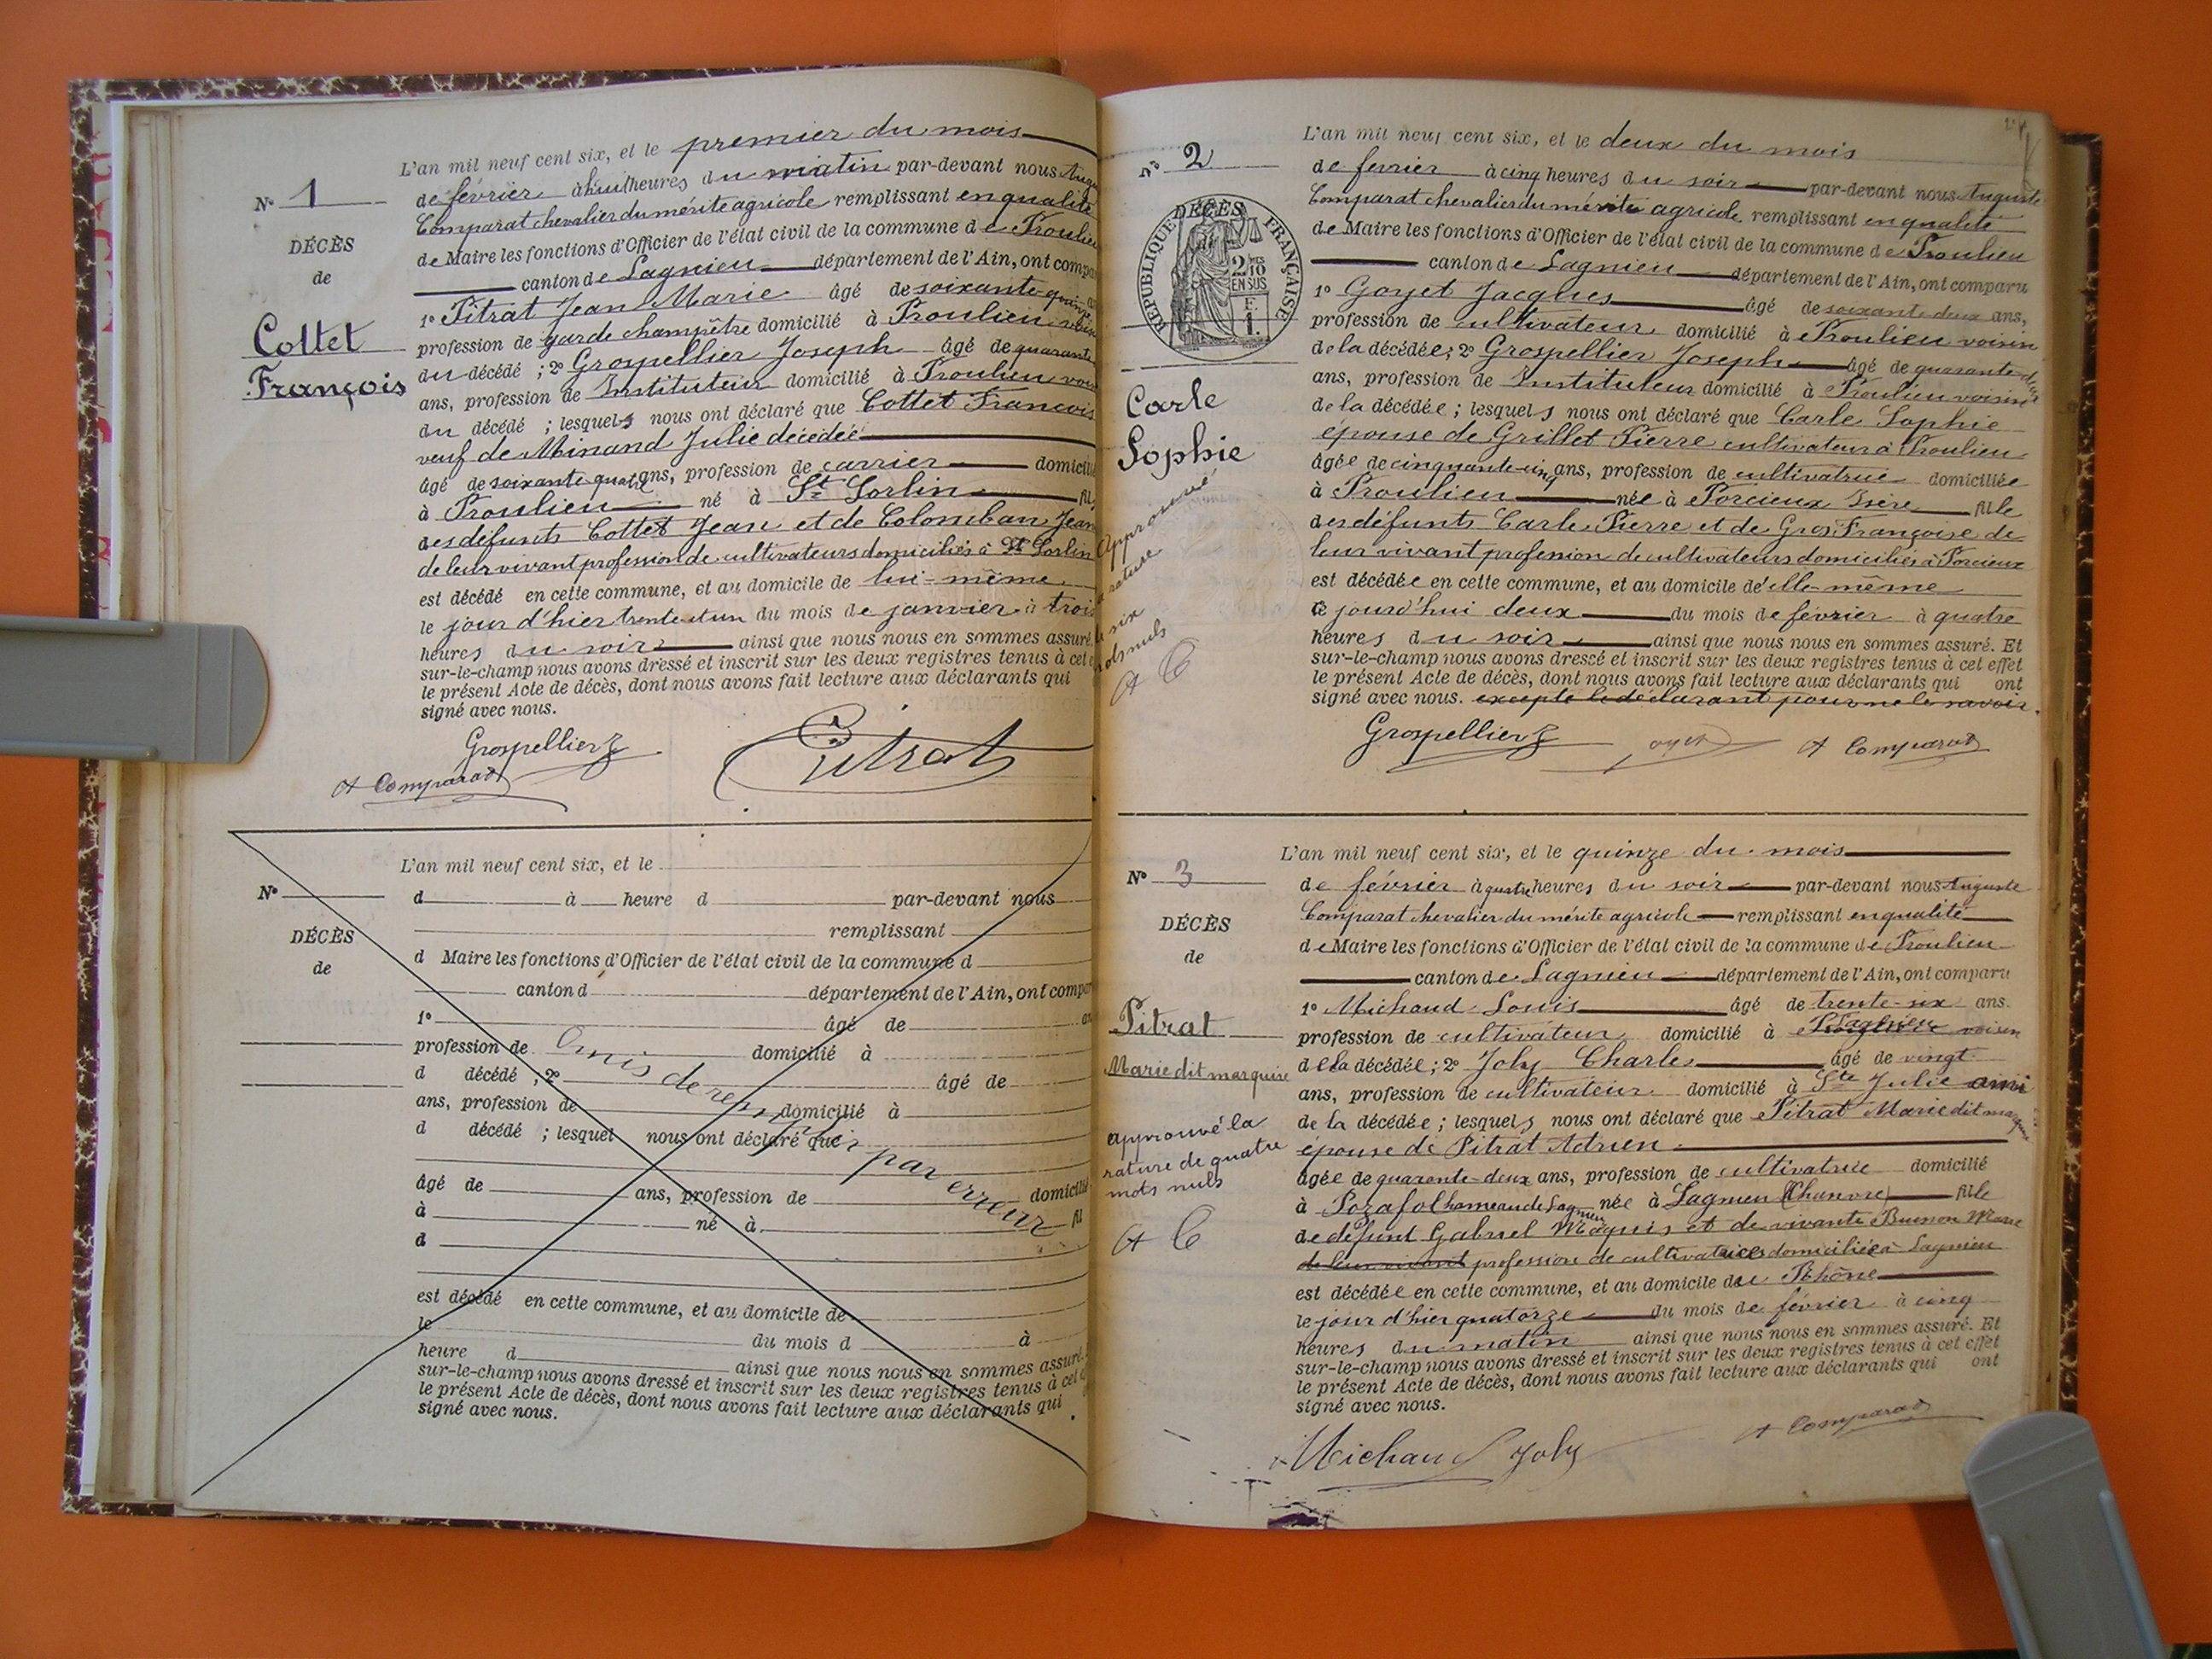 L'an mil neuf cent six, et le premier du mois
N° 1
de février à huit heures du matin par-devant nous
Comparat chevalier du mérite agricole remplissant en qualité
DÉCÈS
de Maire les fonctions d'Officier de l'état civil de la commune de Proulieu
de
canton de Lagnieu département de l'Ain, ont
1° Pitrat Jean Marie âgé de
Cottet
François
profession de garde champêtre domicilié à Proulieu
du décédé ; 2° Grospellier Joseph âgé de quarante
ans, profession de Instituteur domicilié à Proulieu
du décédé ; lesquels nous ont déclaré que Cottet François
veuf de Minand Julie décédée
âgé de soixante quatre ans, profession de carrier
à Proulieu né à St Sorlin
des défunts Cottet Jean et de Colomban
de leur vivant profession de cultivateurs domiciliés à St Sorlin
est décédé en cette commune, et au domicile de lui-même
le jour d'hier trente et un du mois de janvier à trois
heures du soir ainsi que nous nous en sommes assuré.
sur-le-champ nous avons dressé et inscrit sur les deux registres tenus à cet
le présent Acte de décès, dont nous avons fait lecture aux déclarants qui
signé avec nous.
Grospellier J
Pitrat
A Comparat
L'an mil neuf cent six, et le
N°
d à heure d par-devant nous
remplissant
DÉCÈS
de
d Maire les fonctions d'Officier de l'état civil de la commune d
canton d département de l'Ain, ont
1° âgé de
profession de domicilié à
d décédé ; 2° âgé de
ans, profession de domicilié à
d décédé ; lesquel nous ont déclaré que
Omis de remplir par erreur
âgé de ans, profession de domicilié
à né à fil
d
est décédé en cette commune, et au domicile de
le du mois d à
heure d ainsi que nous nous en sommes assuré.
sur-le-champ nous avons dressé et inscrit sur les deux registres tenus à cet
le présent Acte de décès, dont nous avons fait lecture aux déclarants qui
signé avec nous.
L'an mil neuf cent six, et le deux du mois
N° 2
de fevrier à cinq heures du soir par-devant nous Auguste
Comparat chevalier du mérite agricole remplissant en qualité
de Maire les fonctions d'Officier de l'état civil de la commune de Proulieu
canton de Lagnieu département de l'Ain, ont comparu
RÉPUBLIQUE FRANÇAISE
DÉCÈS
de
2/10
EN SUS
1° Goyet Jacques âgé de soixante deux ans,
profession de cultivateur domicilié à Proulieu voisin
de la décédée ; 2° Grospellier Joseph âgé de quarante deux
ans, profession de Instituteur domicilié à Proulieu voisin
Carle
Sophie
de la décédée ; lesquels nous ont déclaré que Carle Sophie
épouse de Grillet Pierre cultivateur à Proulieu
âgée de cinquante-cinq ans, profession de cultivatrice domiciliée
à Proulieu née à Porcieux Isère fille
des défunts Carle Pierre et de Gros Françoise de
leur vivant profession de cultivateurs domiciliés à Porcieux
est décédée en cette commune, et au domicile de elle-même
ce jourd'hui deux du mois de février à quatre
heures du soir ainsi que nous nous en sommes assuré. Et
sur-le-champ nous avons dressé et inscrit sur les deux registres tenus à cet effet
le présent Acte de décès, dont nous avons fait lecture aux déclarants qui ont
signé avec nous. excepté le déclarant pour ne le savoir.
Approuvé
rature
six
mots nuls
A C
Grospellier J
A Comparat
L'an mil neuf cent six, et le quinze du mois
N° 3
de février à quatre heures du soir par-devant nous Auguste
Comparat chevalier du mérite agricole remplissant en qualité
DÉCÈS
de Maire les fonctions d'Officier de l'état civil de la commune de Proulieu
de
canton de Lagnieu département de l'Ain, ont comparu
1° Michaud Louis âgé de trente-six ans
Pitrat
Marie dit marquise
profession de cultivateur domicilié à Lagnieu voisin
de la décédée ; 2° Joly Charles âgé de vingt
ans, profession de cultivateur domicilié à Ste Julie ami
de la décédée ; lesquels nous ont déclaré que Pitrat Marie dit
épouse de Pitrat Adrien
âgée de quarante-deux ans, profession de cultivatrice domicilié
à Pozafol hameau de Lagnieu née à Lagnieu (Chanvre) fille
de défunt Gabriel et de vivante Marie
de leur vivant profession de cultivatrices domiciliée à Lagnieu
approuvé la
rature de quatre
mots nuls
A C
est décédée en cette commune, et au domicile du Rhône
le jour d'hier quatorze du mois de février à cinq
heures du matin ainsi que nous nous en sommes assuré. Et
sur-le-champ nous avons dressé et inscrit sur les deux registres tenus à cet effet
le présent Acte de décès, dont nous avons fait lecture aux déclarants qui ont
signé avec nous.
Michaud Joly
A Comparat